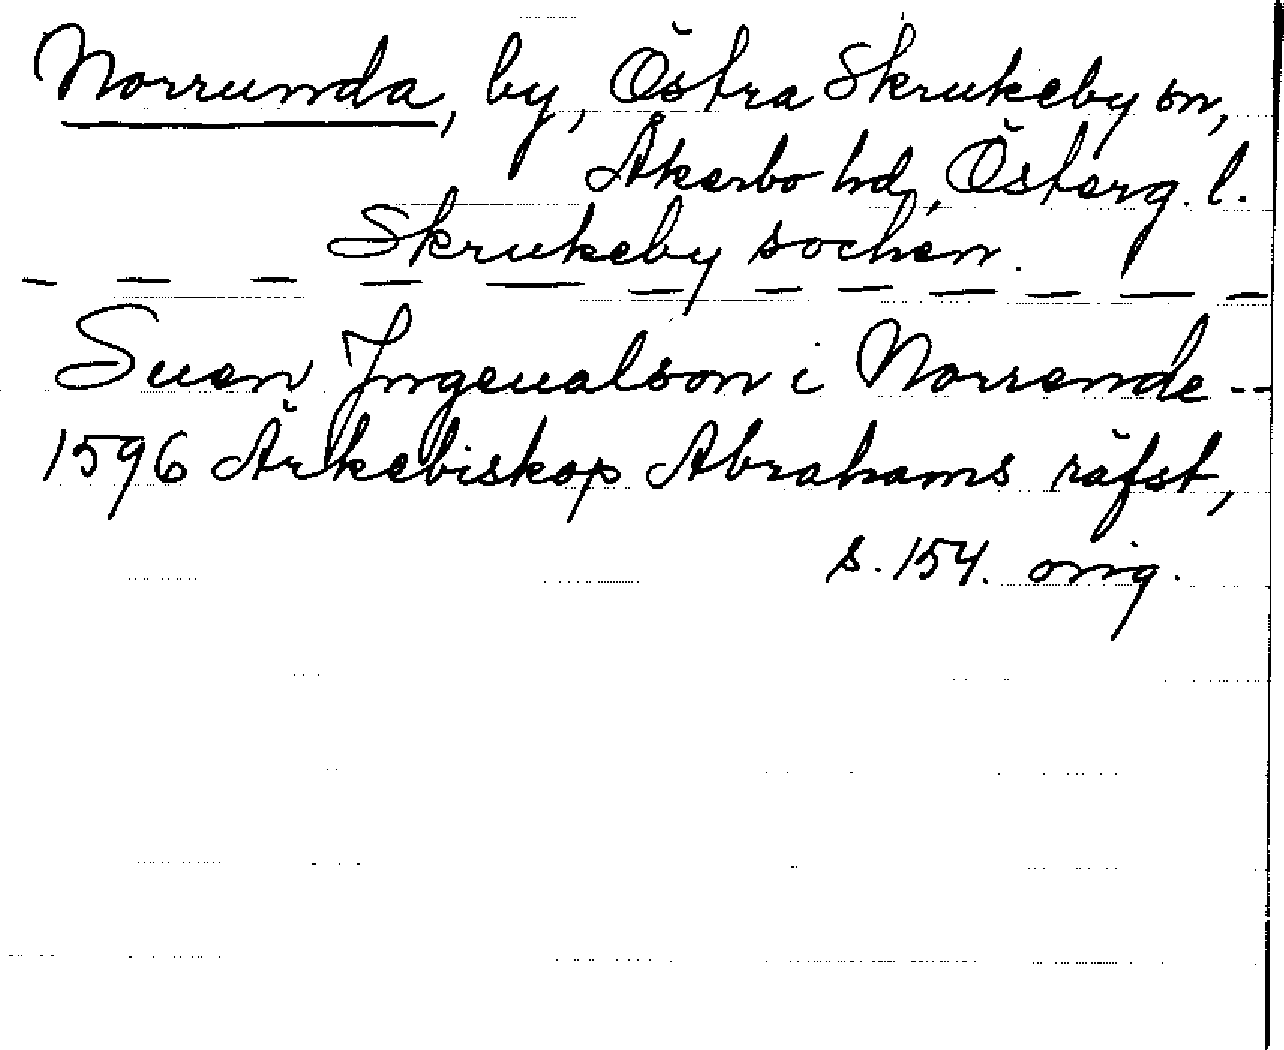 Norrunda, by, Östra Skrukeby sn,
Åkerbo hd, Österg. l.
Skrukeby sochen.
Suen Jngeualson i Norrende --
1596 Ärkebiskop Abrahams räfst,
s. 154. orig.